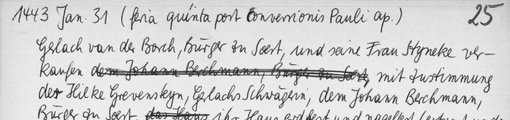 1443 Jan. 31 (feria quinta post Conversionis Pauli ap.) 25
Gerlach van der Borch, Bürger zu Soest, und seine Frau Styneke ver-
kaufen dem Johann Berchmann, Bürger zu Soest, mit Zustimmung
der Hilke Grevensteyn, Gerlachs Schwägerin, dem Johann Berchmann,
Bürger zu Soest, das Haus ihr Haus